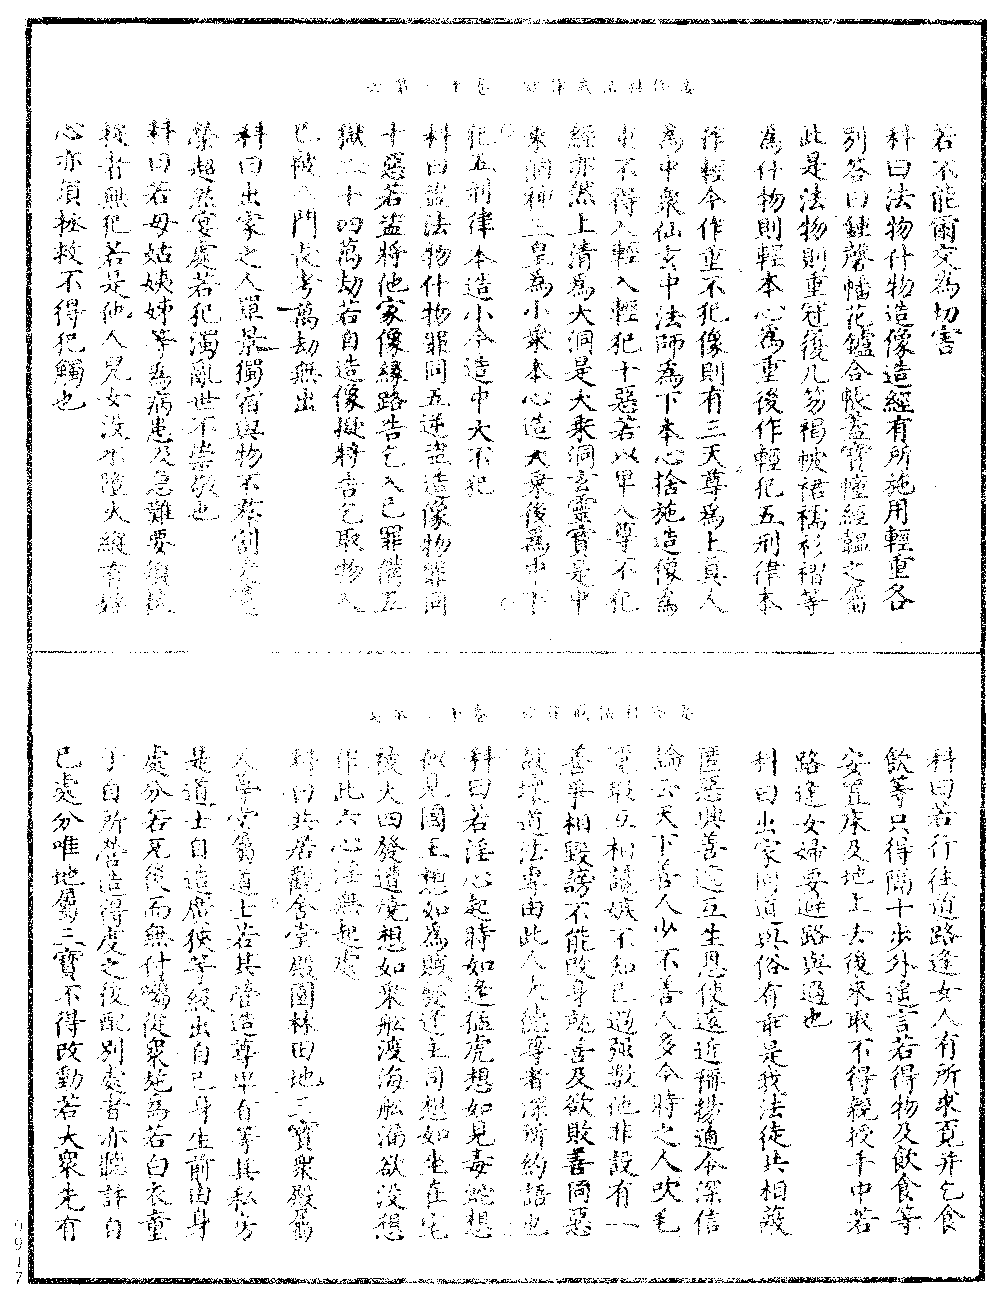 若不能爾交為切害
科曰法物什物造像造經有所施用輕重各
別答曰鍾磬幡花鑪合帳蓋寶幢經韞之屬
此是法物則重冠履几笏褐帔裙襦衫褶等
為什物則輕本心為重後作輕犯五刑律本
作輕今作重不犯像則有三天尊為上真人
為中衆仙玄中法師為下本心捨施造像為
重不得入輕入輕犯十惡若以卑入尊不犯
經亦然上清為大洞是大乘洞玄靈寶是中
乘洞神三皇為小乘本心造大乘後為中下
犯五刑律本造小今造中大不犯
科曰盜法物什物罪同五逆盜造像物罪同
十惡若盜將他家像緣路告乞入已罪備五
獄二十四萬劫若自造像擬將告乞取物入
已被 門長考萬劫無出
科曰出家之人單景獨宿與物不羣割
榮超然宴處若犯濁亂世不崇敬也
科曰若母姑姨姊等為病患及急難要須扶
救者無犯若是他人兒女沒水墮火縱有
心亦須拯救不得犯觸也
科曰若行往道路逢女人有所求覓并乞食
飲等只得隔十步外遙言若得物及飲食等
安置床及地上去後來取不得親授手中若
路逢女婦要避路與過也
科曰出家同道與俗有乖是我法徒共相蔽
匿惡興善遞互生恩使遠近稱揚通令深信
論云天下善人少不善人多今時之人吹毛
覓瑕互相謗嫉不知已過強欺他非設有一
善爭相毀謗不能敗身就善及欲敗善同惡
破壞道法專由此人大德尊者深所約語也
科曰若淫心起時如逢猛虎想如見毒蛇想
似見國王想如為賊 逆主同想如坐在宅
被火四發遺燒想如衆舩渡海舩漏欲沒想
作此六心淫無起處
科曰共居觀舍堂殿園林田地三寶衆殿屬
人 堂屬道士若其營造尊卑有等其私房
是道士自造廣狹等級出自已身生前由身
處分若死後而無付囑從衆施為若白衣童
子自所營造得度之後配別處者亦聽許自
已處分唯地屬三寶不得改動若大衆先有
0917